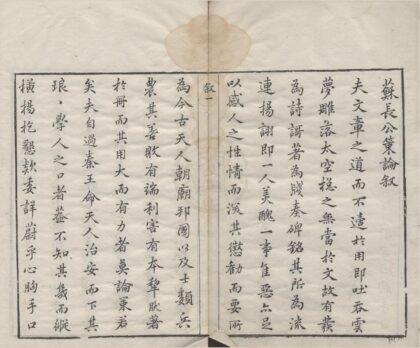 蘇長公策論叙
夫文章之道而不適於用即吐吞雲
夢雕落太空稅之無當於文故有裁
為詩謌著為牋奏碑銘其所為流
連揚詡即一人美醜一事隹惡亦足
以感人之性情而深其懲勸而要所
叙一
為今古天人朝廟邦國以及士類兵
農其善敗有端利害有本鏨肰著
於冊而其用大而有力者莫論策若
矣夫自過秦王命天人治安而下其
琅琅學人之口者葢不知其幾而縱
橫揚扢懇欵委詳蔚乎心胸手口